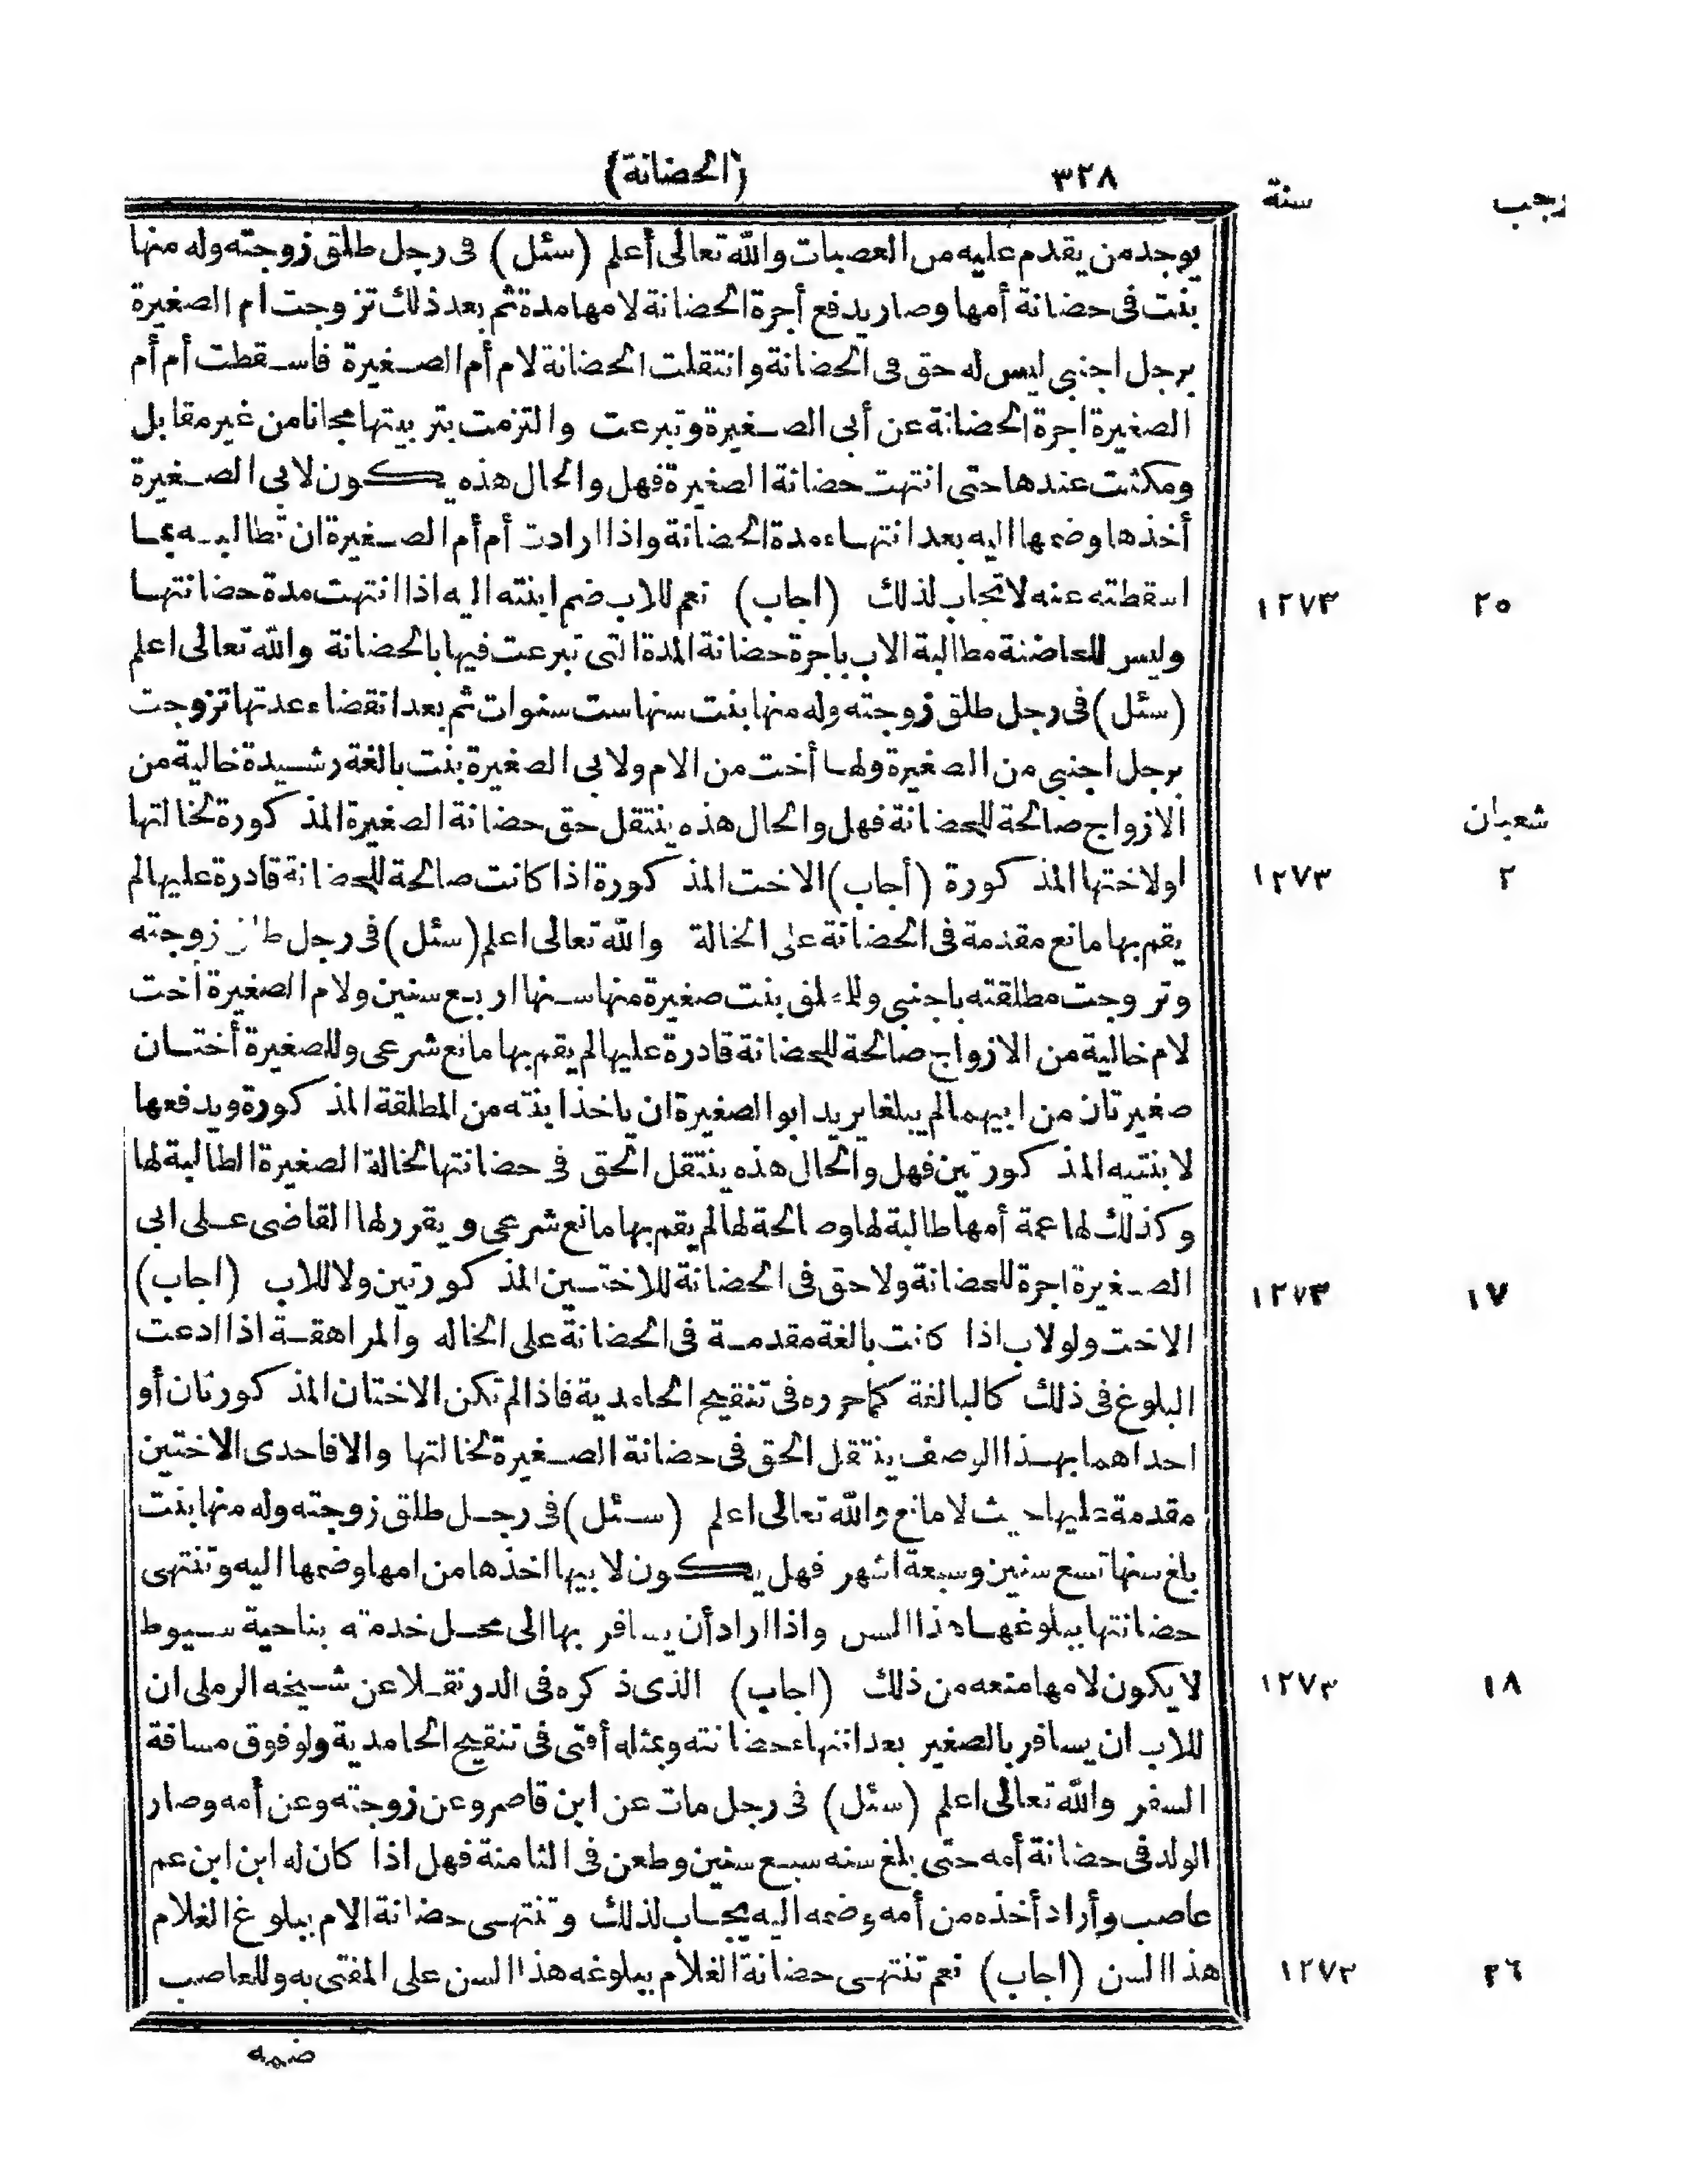 رجب
سنة
٣٢٨
(الحضانة)
يوجد من يقدم عليه من العصبات والله تعالى أعلم (سئل) فى رجل طلق زوجته وله منها
بنت فى حضانة أمها وصار يدفع أجرة الحضانة لامها مدة ثم بعد ذلك تزوجت ام الصغيرة
برجل اجنبى ليس له حق فى الحضانة وانتقلت الحضانة لام أم الصغيرة فاسقطت أم أم
الصغيرة اجرة الحضانة عن أبى الصغيرة وتبرعت والتزمت بتربيتها مجانا من غير مقابل
ومكثت عندها حتى انتهت حضانة الصغيرة فهل والحال هذه يكون لابى الصغيرة
أخذها وضمها اليه بعد انتهاء مدة الحضانة واذا ارادت أم أم الصغيرة ان تطالبه بما
اسقطته عنه لا تجاب لذلك (اجاب) نعم للاب ضم ابنته اليه اذا انتهت مدة حضانتها
٢٥ ١٢٧٣
وليس للحاضنة مطالبة الاب باجرة حضانة المدة التى تبرعت فيها بالحضانة والله تعالى اعلم
(سئل) فى رجل طلق زوجته وله منها بنت سنها ست سنوات ثم بعد انقضاء عدتها تزوجت
برجل اجنبى من الصغيرة ولها أخت من الام ولابى الصغيرة بنت بالغة رشيدة خالية من
الازواج صالحة للحضانة فهل والحال هذه ينتقل حق حضانة الصغيرة المذكورة لخالتها
شعبان
اولاختها المذكورة (أجاب) الاخت المذكورة اذا كانت صالحة للحضانة قادرة عليها لم
٢ ١٢٧٣
يقم بها مانع مقدمة فى الحضانة على الخالة والله تعالى اعلم (سئل) فى رجل طلق زوجته
وتزوجت مطلقته باجنبى وللمطلق بنت صغيرة منها سنها اربع سنين ولام الصغيرة أخت
لام خالية من الازواج صالحة للحضانة قادرة عليها لم يقم بها مانع شرعى وللصغيرة أختان
صغيرتان من ابيهما لم يبلغا يريد ابو الصغيرة ان ياخذ ابنته من المطلقة المذكورة ويدفعها
لابنتيه المذكورتين فهل والحال هذه ينتقل الحق فى حضانتها لخالة الصغيرة الطالبة لها
وكذلك لها عمة أمها طالبة لها وصالحة لها لم يقم بها مانع شرعى ويقرر لها القاضى على ابى
الصغيرة اجرة للحضانة ولا حق فى الحضانة للاختين المذكورتين ولا للاب (اجاب)
١٧ ١٢٧٣
الاخت ولو لاب اذا كانت بالغة مقدمة فى الحضانة على الخاله والمراهقة اذا ادعت
البلوغ فى ذلك كالبالغة كما حرره فى تنقيح الحامدية فاذا لم تكن الاختان المذكورتان أو
احداهما بهذا الوصف ينتقل الحق فى حضانة الصغيرة لخالتها والا فاحدى الاختين
مقدمة عليها حيث لا مانع والله تعالى اعلم (سئل) فى رجل طلق زوجته وله منها بنت
بلغ سنها تسع سنين وسبعة اشهر فهل يكون لابيها اخذها من امها وضمها اليه وتنتهى
حضانتها ببلوغها هذا السن واذا اراد أن يسافر بها الى محل خدمته بناحية سيوط
لا يكون لامها منعه من ذلك (اجاب) الذى ذكره فى الدر نقلا عن شيخه الرملى ان
١٨ ١٢٧٣
للاب ان يسافر بالصغير بعد انتهاء حضانته وبمثله أفتى فى تنقيح الحامدية ولو فوق مسافة
السفر والله تعالى اعلم (سئل) فى رجل مات عن ابن قاصر وعن زوجته وعن أمه وصار
الولد فى حضانة أمه حتى بلغ سنه سبع سنين وطعن فى الثامنة فهل اذا كان له ابن ابن عم
عاصب وأراد أخذه من أمه وضمه اليه يجاب لذلك وتنتهى حضانة الام ببلوغ الغلام
هذا السن (اجاب) نعم تنتهى حضانة الغلام ببلوغه هذا السن على المفتى به وللعاصب
٢٦ ١٢٧٣
ضمه